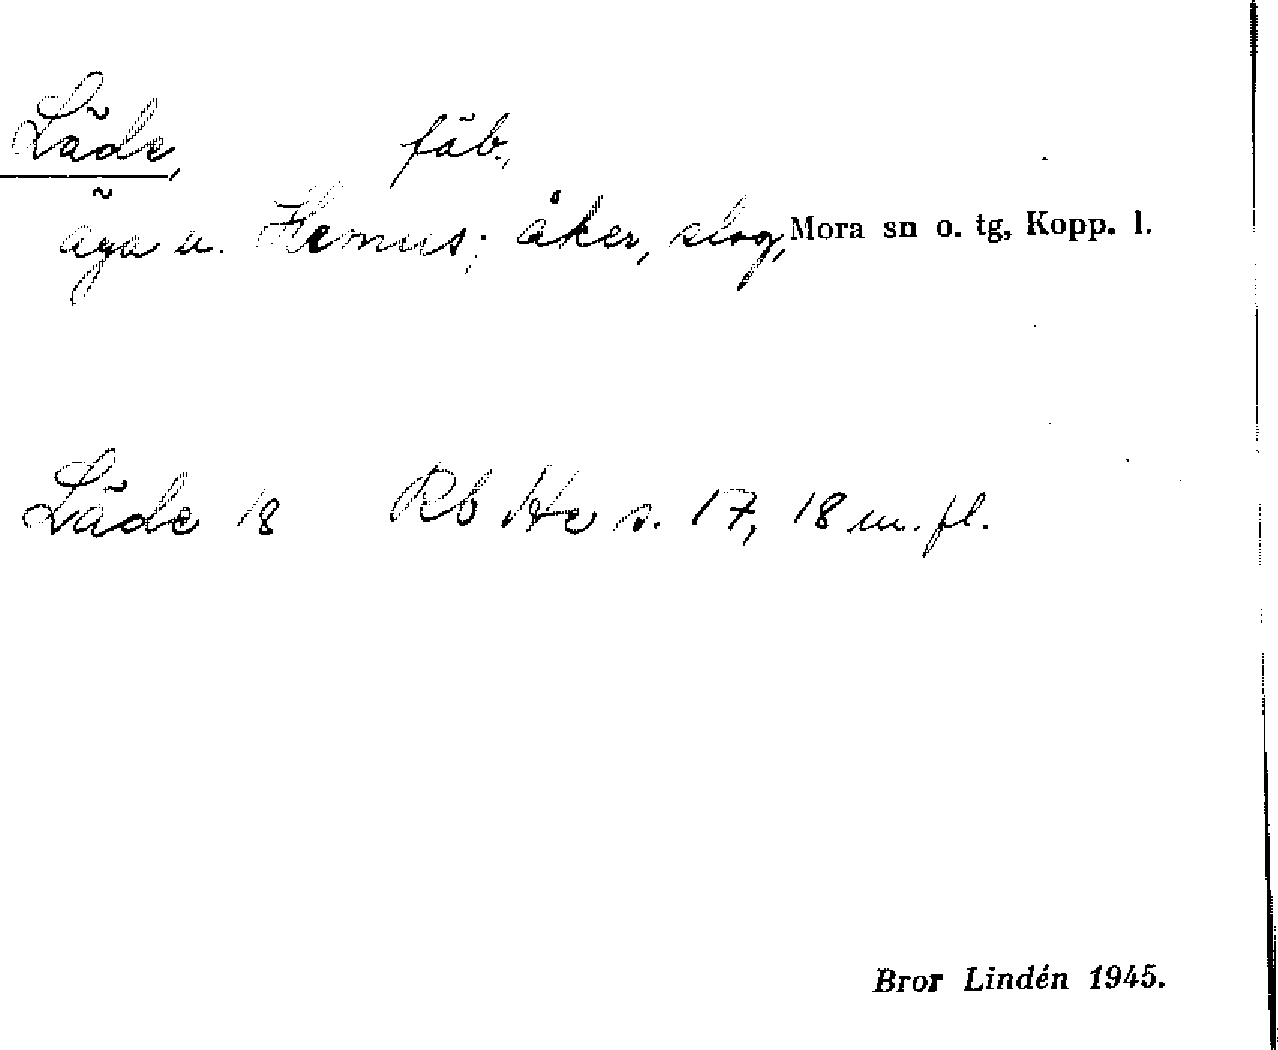 Läde, fäb.,
äga u. Hemus; åker, slog, Mora sn o. tg, Kopp. l.
Läde 18 Rb He s. 17, 18 m. fl.
Bror Lindén 1945.